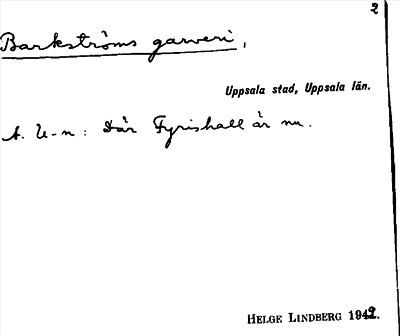 2
Barkströms garveri,
Uppsala stad, Uppsala län.
A. U-n: Där Fyrishall är nu.
HELGE LINDBERG 1942.